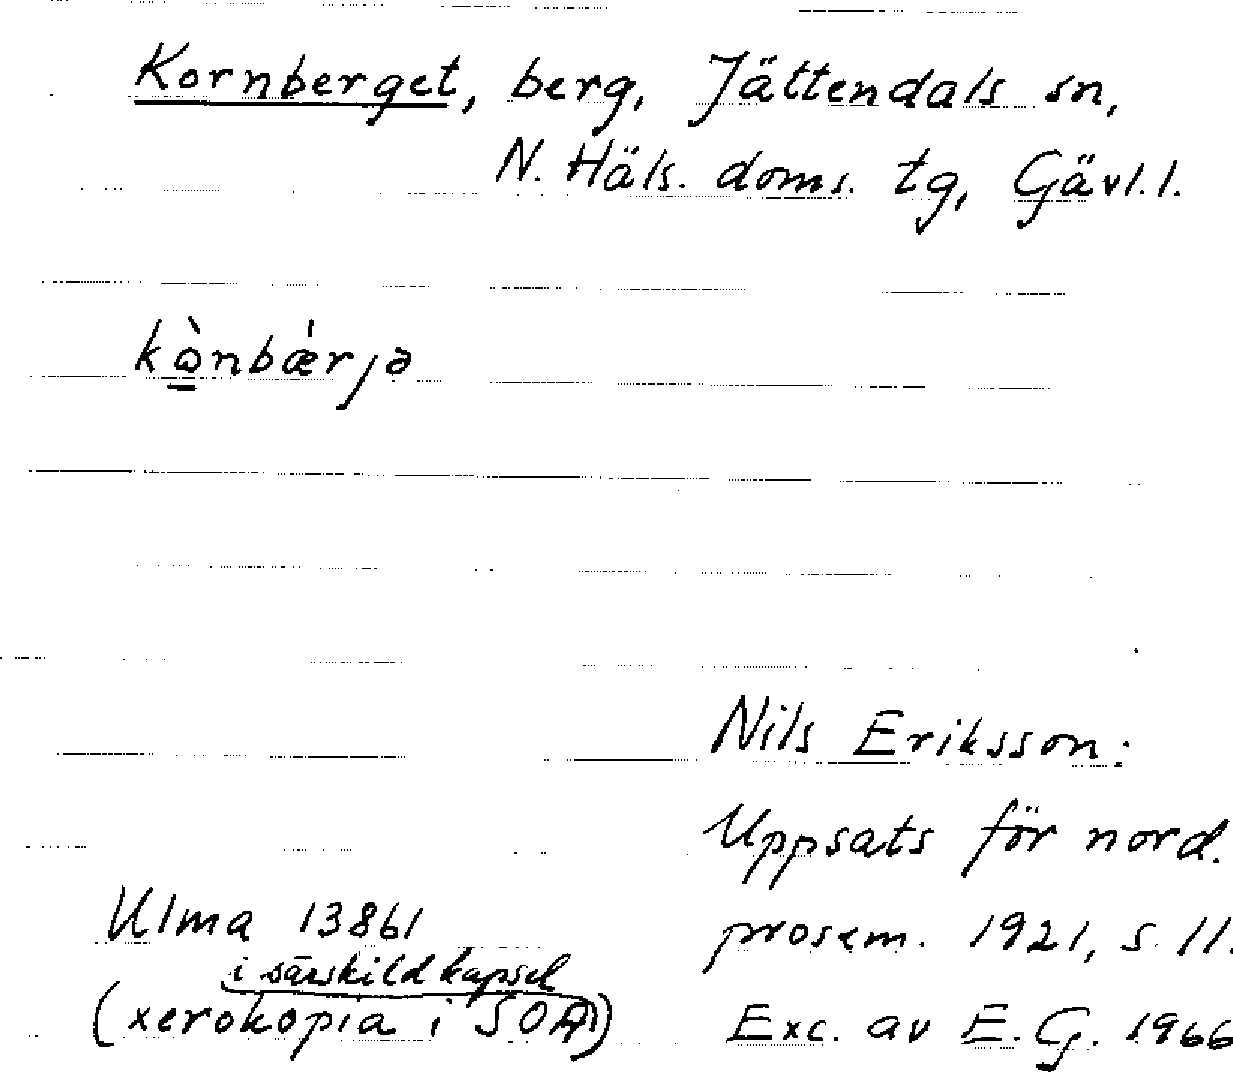 Kornberget, berg, Jättendals sn,
N. Häls. doms. tg, Gävl. l.
kò̱nbǽrjə
Nils Eriksson:
Uppsats för nord.
prosem. 1921, s. 11.
Exc. av E. G. 1966
Ulma 13861
i särskild kapsel
(xerokopia i SOA)